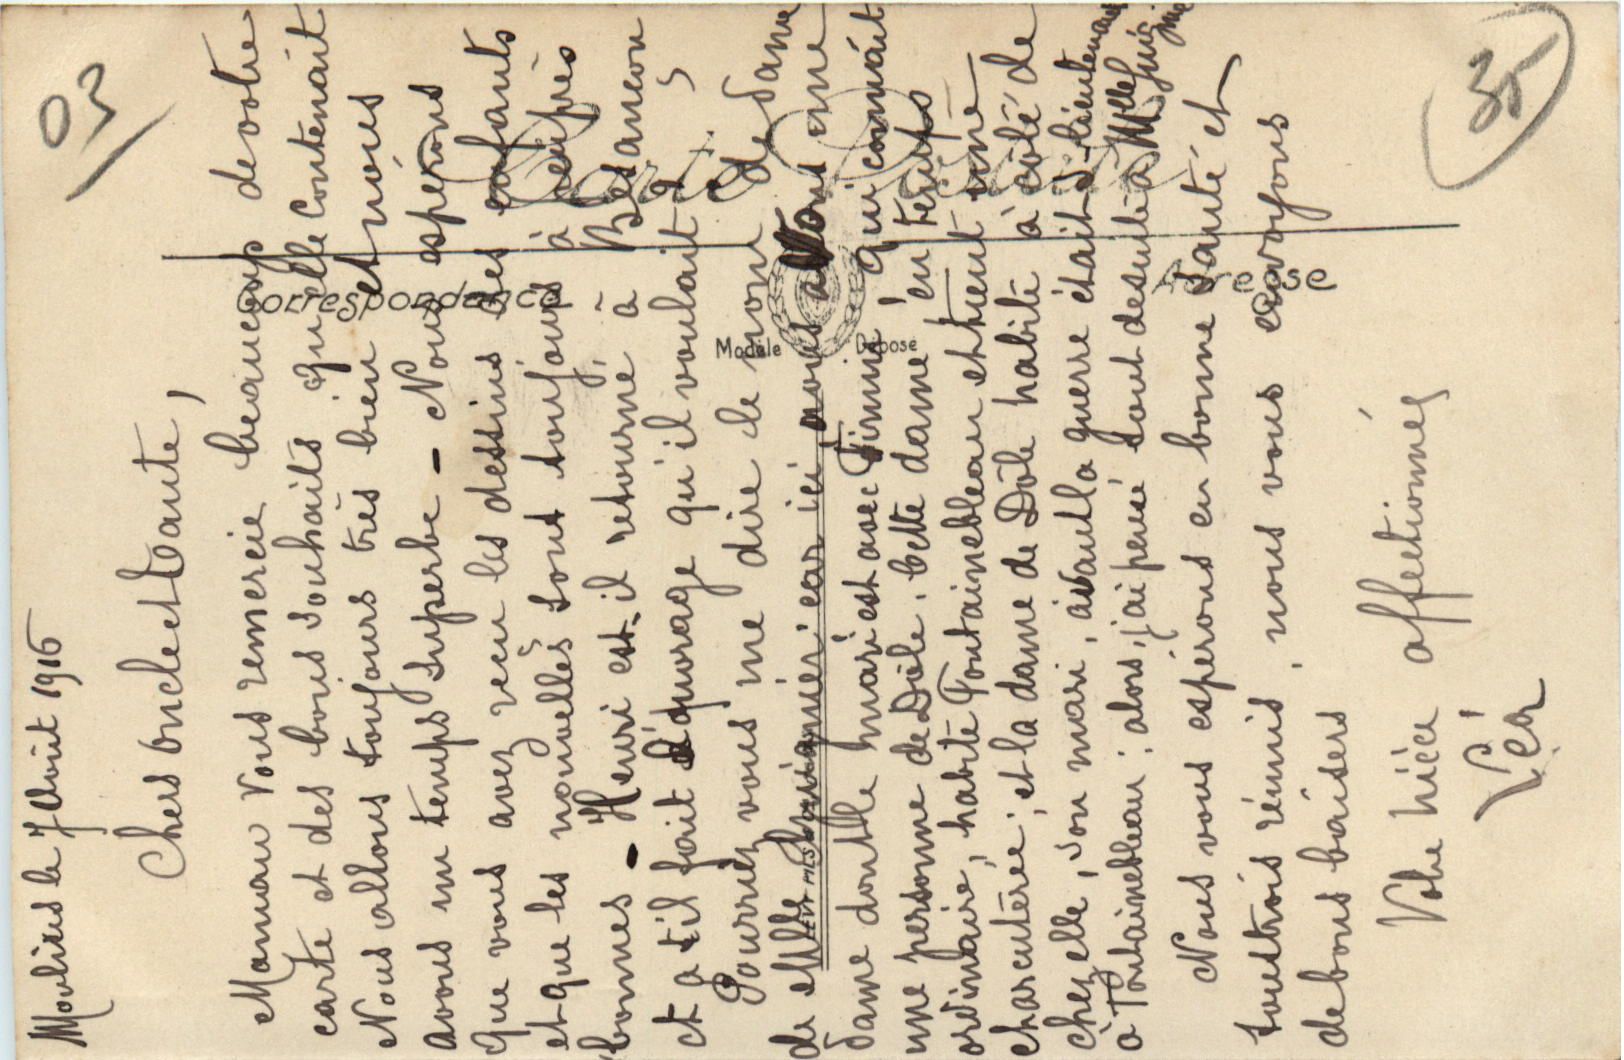 03
35
Carte Postale
Correspondance
Adresse
Modèle Déposé
LEVY FILS
Moulins le 7 Août 1916
Chers oncle et tante,
Maman vous remercie beaucoup de votre
carte et des bons souhaits qu'elle contenait
Nous allons toujours très bien et nous
avons un temps superbe - Nous espérons
que vous avez reçu les dessins des enfants
et que les nouvelles sont toujours à peu près
bonnes - Henri est-il retourné à Besançon
et a t'il fait l'ouvrage qu'il voulait ?
Pourriez vous me dire le nom de dame
de Melle car ici nous avons une
dame dont le mari est avec qui connaît
une personne de Dôle. Cette dame, en temps
ordinaire, habite Fontainebleau et tient une
charcuterie ; et la dame de Dôle habite à côté de
chez elle, son mari, avant la guerre était s-lieutenant
à Fontainebleau : alors, j'ai pensé tout de suite à Melle
Nous vous espérons en bonne santé et
tous trois réunis, nous vous envoyons
de bons baisers
Votre nièce affectionnée
Léa